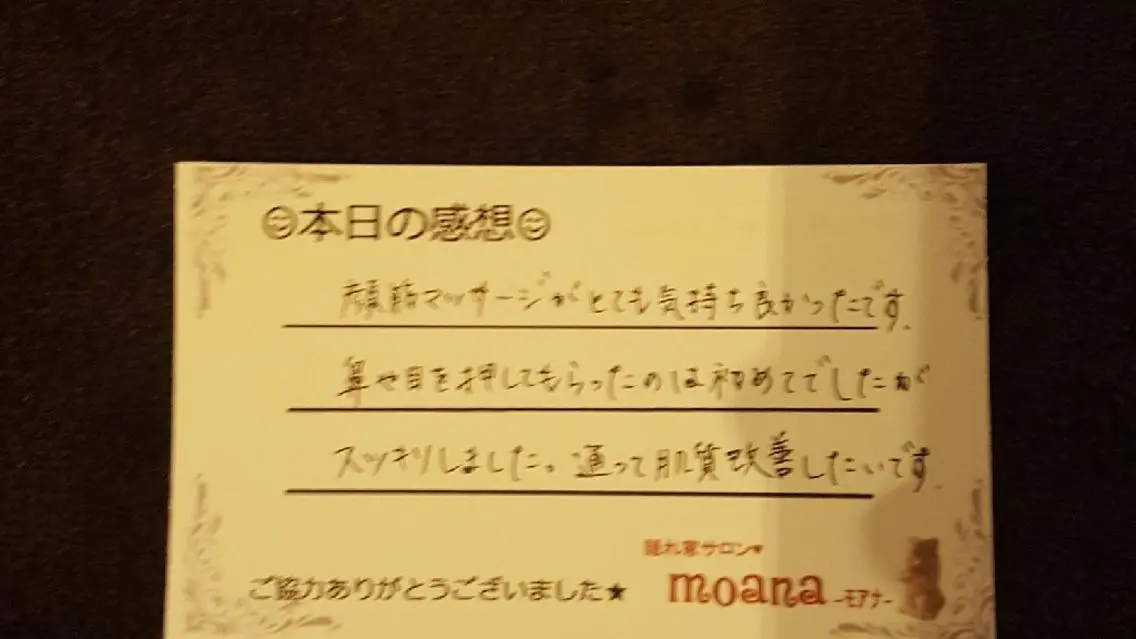 本日の感想
顔筋マッサージがとても気持ち良かったです.
鼻や目を押してもらったのは初めてでしたが
スッキリしました。通って肌質改善したいです.
隠れ家サロン♥
moana -モアナ-
ご協力ありがとうございました★